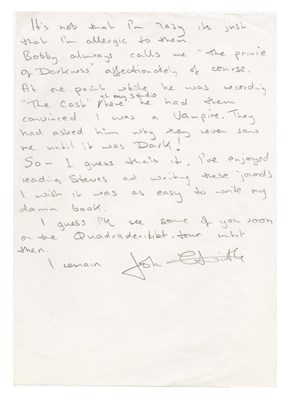 It's not that I'm lazy its just
that I'm allergic to them.
Bobby always calls me "The prince
of Darkness" affectionately of course.
At one point while he was recording
"The Cask" at my studio there, he had them
convinced I was a Vampire. They
had asked him why they never saw
me until it was Dark!
So - I guess thats it. I've enjoyed
reading Steves and writing these journals
I wish it was as easy to write my
damn book.
I guess I'll see some of you soon
on the tour until
then.
I remain John